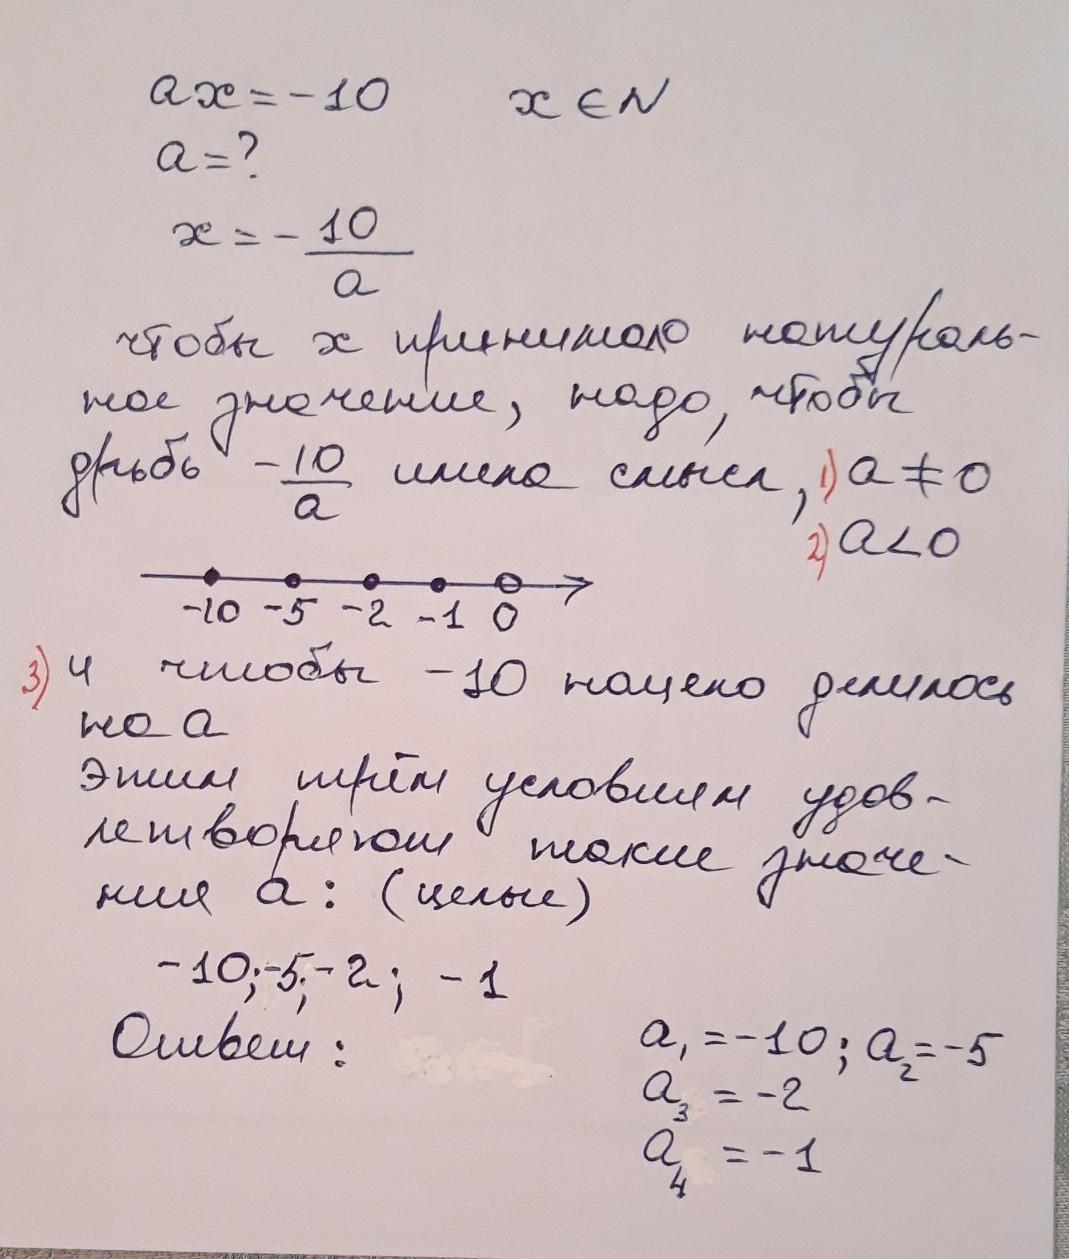 ax = -10 x ∈ N
a = ?
x = - 10/a
чтобы x принимало натураль-
ное значение, надо, чтобы
дробь -10/a имела смысл, 1) a ≠ 0
2) a < 0
-10 -5 -2 -1 0
3) И чтобы -10 нацело делилось
на a
Этим трём условиям удов-
летворяют такие значе-
ния a: (целые)
-10; -5; -2; -1
Ответ: a₁ = -10; a₂ = -5
a₃ = -2
a₄ = -1